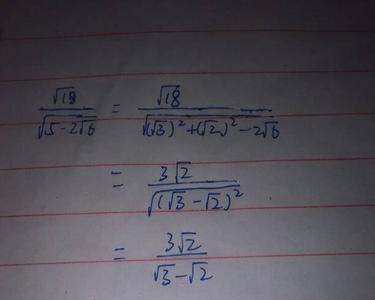 √18/√(5-2√6) = √18/√((√3)²+(√2)²-2√6)
= 3√2/√((√3-√2)²)
= 3√2/(√3-√2)